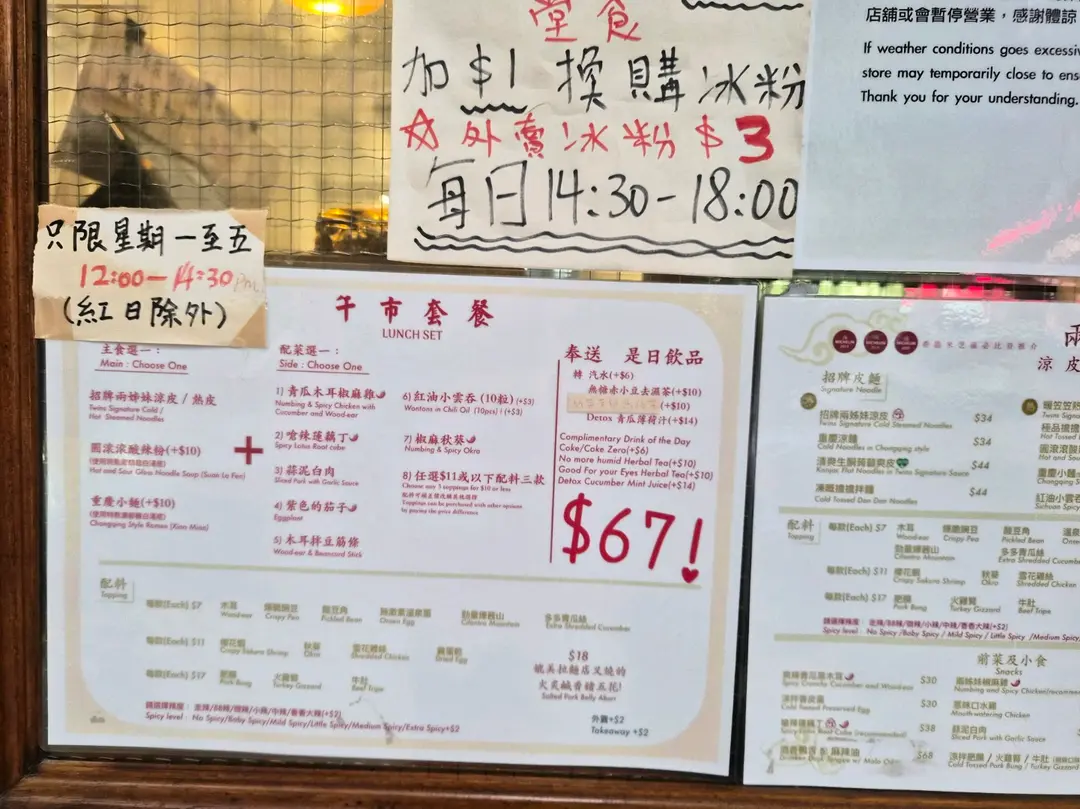 堂食
加$1 換購冰粉
☆外賣冰粉$3
每日14:30-18:00
店舖或會暫停營業，感謝體諒
If weather conditions goes excessiv
store may temporarily close to ens
Thank you for your understanding.
只限星期一至五
12:00-14:30pm
(紅日除外)
午市套餐
LUNCH SET
主食選一：
Main : Choose One
招牌兩姊妹涼皮 / 熱皮
Twins Signature Cold /
Hot Steamed Noodles
圓滾滾酸辣粉(+$10)
Hot and Sour Glass Noodle Soup (Suan La Fen)
重慶小麵(+$10)
Chongqing Style Ramen (Xiao Mian)
+
配菜選一：
Side : Choose One
1) 青瓜木耳椒麻雞
Numbing & Spicy Chicken with
Cucumber and Wood-ear
2) 嗆辣蓮藕丁
Spicy Lotus Root cube
3) 蒜泥白肉
Sliced Pork with Garlic Sauce
4) 紫色的茄子
Eggplant
5) 木耳拌豆筋條
Wood-ear & Beancurd Stick
6) 紅油小雲吞 (10粒) (+$3)
Wontons in Chili Oil (10pcs) (+$3)
7) 椒麻秋葵
Numbing & Spicy Okra
8) 任選$11或以下配料三款
Choose any 3 toppings for $10 or less
配料可補差價改購其他選擇
Toppings can be purchased with other options
by paying the price difference
奉送 是日飲品
轉 汽水(+$6)
無糖赤小豆去濕茶(+$10)
(+$10)
Detox 青瓜薄荷汁(+$14)
Complimentary Drink of the Day
Coke/Coke Zero(+$6)
No more humid Herbal Tea(+$10)
Good For your Eyes Herbal Tea(+$10)
Detox Cucumber Mint Juice(+$14)
$67!
配料
Topping
每款(Each) $7 木耳 爆脆豌豆 酸豆角 勁量煙薯山 多多青瓜絲
Wood-ear Crispy Pea Pickled Bean Onsen Egg Cilantro Mountain Extra Shredded Cucumber
每款(Each) $11 櫻花蝦 秋葵 雪花雞絲 煎蛋
Crispy Sakura Shrimp Okra Shredded Chicken Fried Egg
每款(Each) $17 肥腸 火雞腎 牛肚
Pork Bung Turkey Gizzard Beef Tripe
$18
媲美拉麵店叉燒的
火炙鹹香豬五花!
Salted Pork Belly Aburi
請選擇辣度： 走辣/BB辣/微辣/小辣/中辣/番番大辣(+$2)
Spicy level : No Spicy/Baby Spicy/Mild Spicy/Little Spicy/Medium Spicy/Extra Spicy+$2
外賣+$2
Takeaway +$2
MICHELIN MICHELIN MICHELIN
香港米芝蓮必比登推介
兩
涼皮
招牌皮麵
Signature Noodle
招牌兩姊妹涼皮 $34
重慶涼麵 $34
Cold Noodles in Chongqing style
$44
Konjac Hot Noodles in Twins Signature Sauce
凍嘅擔擔拌麵 $44
Cold Tossed Dan Dan Noodles
配料
Topping
每款(Each) $7 木耳 爆脆豌豆 酸豆角
Wood-ear Crispy Pea Pickled Bean
多多青瓜絲
Cilantro Mountain Extra Shredded Cucumber
每款(Each) $11 櫻花蝦 秋葵 雪花雞絲
Crispy Sakura Shrimp Okra Shredded Chicken
每款(Each) $17 肥腸 火雞腎 牛肚
Pork Bung Turkey Gizzard Beef Tripe
請選擇辣度： 走辣/BB辣/微辣/小辣/中辣/番番大辣(+$2)
Spicy level : No Spicy /Baby Spicy / Mild Spicy / Little Spicy /Medium Spicy
前菜及小食
Snacks
$30
Spicy Crunchy Cucumber and Wood-ear
涼拌青皮蛋 $30
Cold Tossed Preserved Egg
嗆辣蓮藕丁 $38
$68
兩姊妹椒麻雞
Numbing and Spicy Chicken(recommen
惹味口水雞
Mouthwatering Chicken
蒜泥白肉
Sliced Pork with Garlic Sauce
涼拌肥腸 / 火雞腎 / 牛肚
Cold Tossed Pork Bung / Turkey Gizzard / Beef Tri